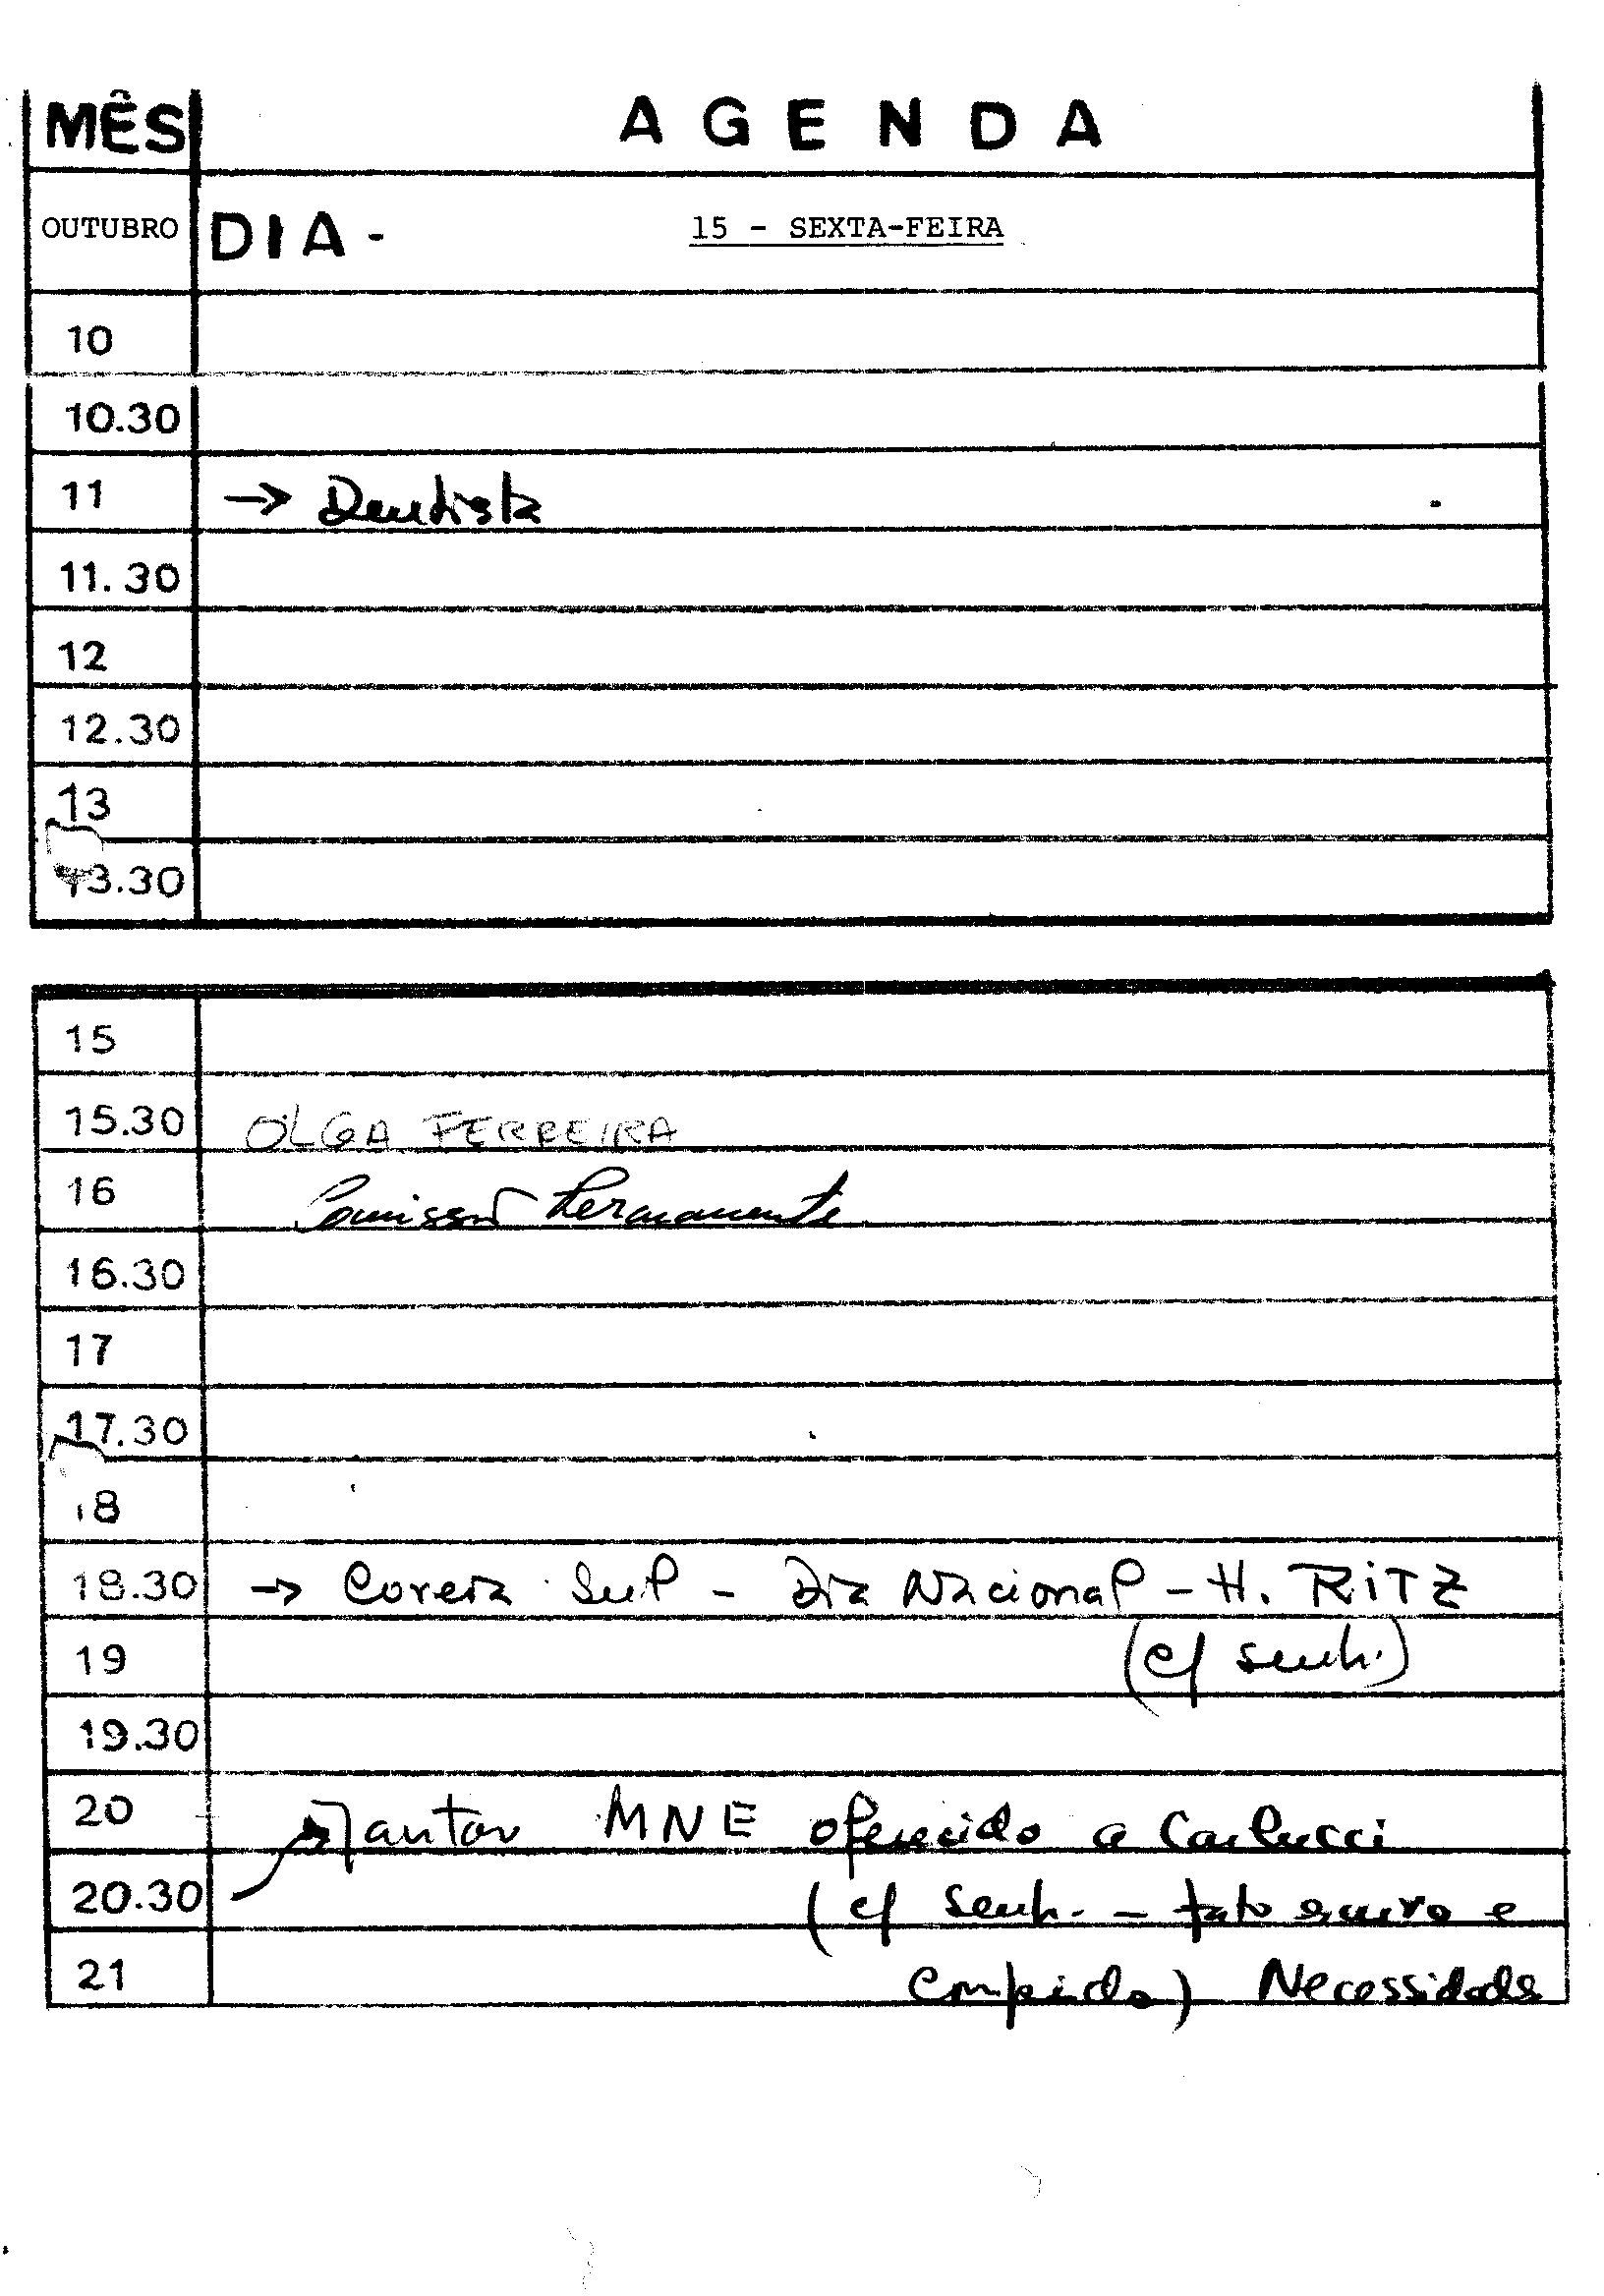 MÊS AGENDA
OUTUBRO DIA - 15 - SEXTA-FEIRA
10
10.30
11 → Dentista
11.30
12
12.30
13
13.30
15
15.30 OLGA FERREIRA
16 Comissão Permanente
16.30
17
17.30
18
18.30 → Coreia Sul - Dia Nacional - H. RITZ
19 (c/ senh.)
19.30
20 → Jantar MNE oferecido a Carlucci
20.30 (c/ senh. - fato escuro e
21 comprido) Necessidades